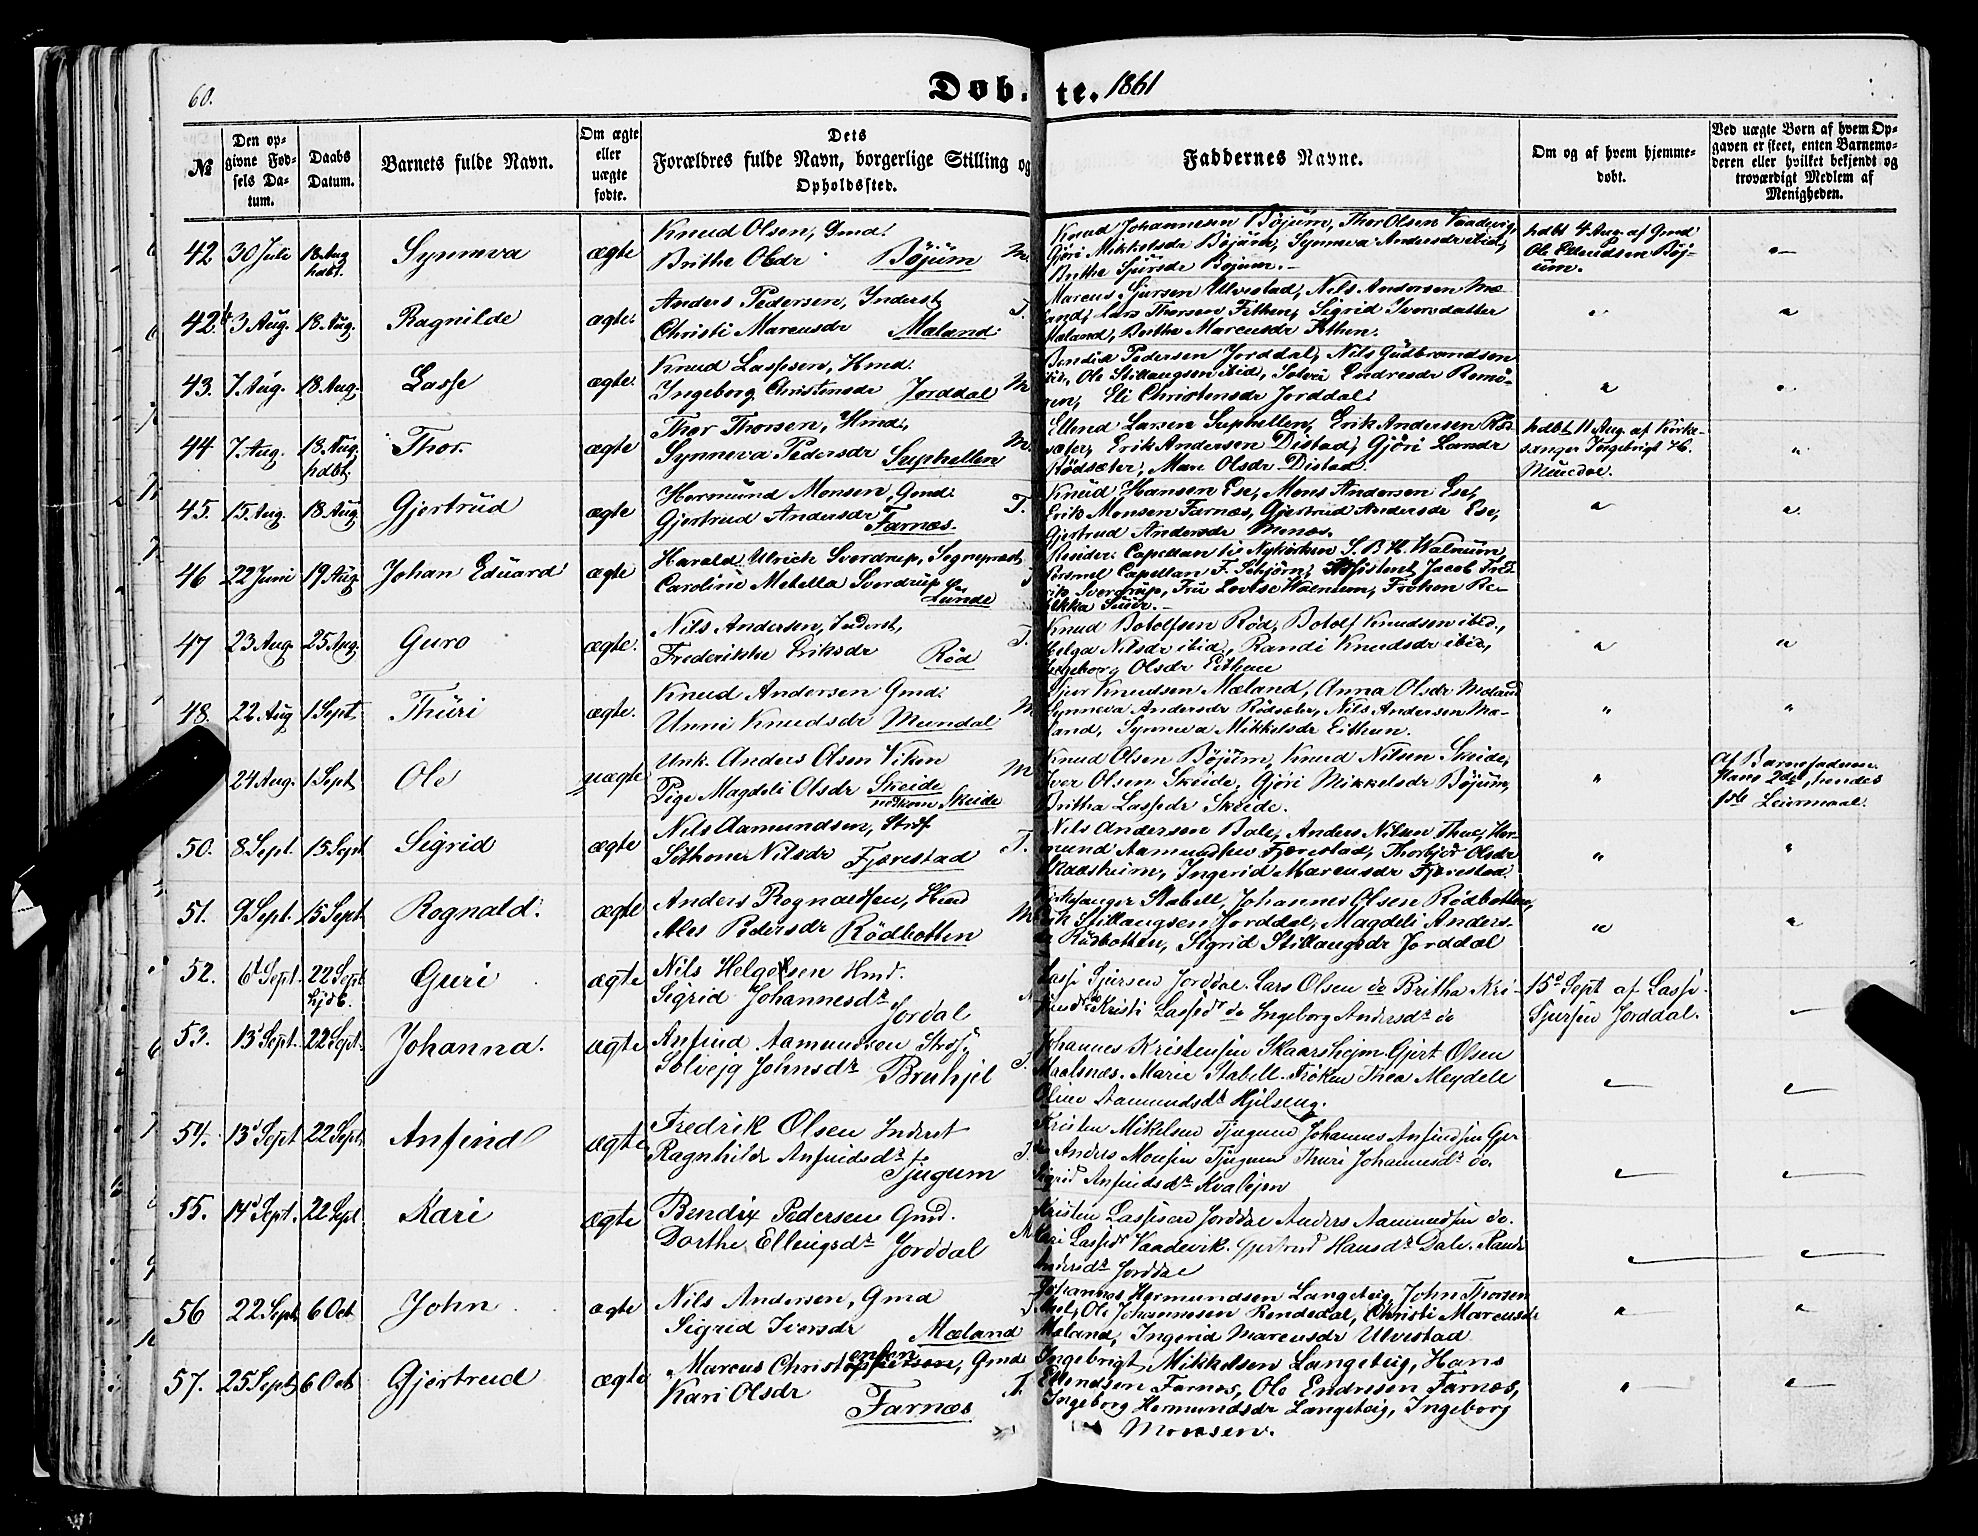 60.
Døb-te. 1861
№
Den opgivne Fødsels Datum.
Daabs Datum.
Barnets fulde Navn.
Om ægte eller uægte fødte.
Dets Forældres fulde Navn, borgerlige Stilling og Opholdssted.
Faddernes Navne.
Om og af hvem hjemmedøbt.
Ved uægte Børn af hvem Opgaven er skeet, enten Barnemoderen eller hvilket bekjendt og troværdigt Medlem af Menigheden.
42 30 Juli 18 Aug hdbt. Synneva ægte
Knud Olsen, Gmd.
Brithe Olsdr Böjum M.
Knud Johannesen Böjum, Thor Olsen Vaadevig,
Gjöri Mikkelsdr Böjum, Synneva Andersdr ibid,
Brithe Sjursdr Böjum.
hdbt 4 Aug. af Gmd
Ole Böj-
um.
42b 3 Aug. 18 Aug. Ragnilde ægte.
Anders Pedersen, Inderst,
Christi Marcusdr Mæland. T.
Marcus Sjursen Ulvestad, Nils Andersen Mæ-
land, Lars Thorsen Sigrid Iversdatter
Mæland, Brithe Marcusdr
43. 7 Aug. 18 Aug. Lasse ægte.
Knud Lassesen, Hmd.
Ingeborg Christensdr Jorddal M
Bendix Pedersen Jorddal, Nils Gudbrandsen
ibid, Ole Stillaugsen ibid, Endresdr Romö-
ren, Eli Christensdr Jorddal.
44 7 Aug. 18 Aug. hdbt Thor. ægte
Thor Thorsen, Hmd,
Synneva Pedersdr Suphellen M.
Ellend Larsen Suphellen, Erik Andersen Röd-
sæter, Erik Andersen Distad, Gjöri Larsdr
Rödsæter, Mari Olsdr Distad.
hdbt 11 Aug. af Kirke-
sanger Ingebrigt H.
Mundal.
45. 15 Aug. 18 Aug Gjertrud ægte
Hermund Monsen, Gmd.
Gjertrud Andersdr Farnæs. T.
Knud Hansen Ese, Mons Andersen Ese,
Erik Monsen Farnæs, Gjertrud Andersdr Ese,
Gjertrud Andersdr
46 22 Juni 19 Aug Johan Eduard ægte
Harald Ulrich Sverdrup, Sognepræst,
Caroline Metella Sverdrup Lunde
Resider. Capellan til Nykirken S. B. H. Walnum,
Personel Capellan F. Schjörn, Assistent Jacob Fred-
rik Sverdrup, Fru Lovise Walnum, Fröken Re-
bekka
47 23 Aug. 25 Aug. Guro ægte.
Nils Andersen, Inderst,
Frederikke Eriksdr Röd T.
Knud Botolfsen Röd, Botolf Knudsen ibid.,
Helga Nilsdr ibid, Randi Knudsdr ibid,
Ingeborg Olsdr Eithun
48. 22 Aug 1 Sept Thuri ægte.
Knud Andersen Gmd.
Unni Knudsdr Mundal M
Sjur Knudsen Mæland, Anna Olsdr Mæland
Synneva Andersdr Rödsæter, Nils Andersen Mæ-
land, Synneva Mikkelsdr Eithun.
24 Aug. 1 Sept Ole uægte
Unk. Anders Olsen Viken
Pige Magdeli Olsdr Skeide Skeide M
Knud Olsen Böjum, Knud Nilsen Skeide,
Iver Olsen Skeide, Gjöri Mikkelsdr Böjum,
Britha Lassedr Skeide.
Af Barnefaderen.
Hans 2det, hendes
1ste Leiermaal.
50. 8 Sept. 15 Sept Sigrid ægte
Nils Aamundsen, Strsf.
Nilsdr Fjærestad T.
Nils Andersen Bale, Anders Nilsen Thue, Her-
mund Aamundsen Fjærestad, Thorbjör Olsdr
Skaasheim, Ingerid Marcusdr Fjærestad
51. 9 Sept. 15 Sept Rognald. ægte
Anders Rognaldsen, Hmd
Ales Pedersdr Rödbotten M
Kirkesanger Stabell, Johannes Olsen Rödbotten,
Erik Stillaugsen Jorddal, Magdeli Anders-
dr Rödbotten, Sigrid Stillaugsdr Jorddal
52. 6t Sept. 22 Sept hjdb. Guri ægte
Nils Helgesen Hmd.
Sigrid Johannesdr Jordal
Lasse Sjursen Jorddal. Lars Olsen do Britha
Kristi Lassedr do Ingeborg Andersdr do
15d Sept af Lasse
Sjursen Jorddal.
53. 13d Sept. 22 Sept. Johanna. ægte
Anfind Aamundsen Strsf.
Solvejg Johnsdr T.
Johannes Kristensen Skaarshejm Gjert Olsen
Maalsnæs. Marie Stabell. Fröken Thea Meydell
Oline Aamundsdr Hjelseng.
54. 13d Sept 22 Sept. Anfind ægte
Fredrik Olsen Inderst
Ragnhilde Anfindsdr Tjugum
Kristen Mikelsen Tjugum Johannes Anfindsen
Andres Monsen Tjugum Thuri Johannesdr do.
Sigrid Anfindsdr
55. 14d Sept. 22 Sept Kari ægte
Bendix Pedersen Gmd.
Dorthe Ellingsdr Jorddal
Kristen Lassesen Jorddal Anders Aamundsen do.
Kari Lassedr Vaadevik. Gjertrud Hansdr Dale.
Andersdr Jorddal
56 22 Sept 6 Oct John ægte
Nils Andersen, Gmd
Sigrid Iversdr Mæland
Johannes Hermundsen Langeteig, John Thorsen
Ole Johannesen Rendedal, Christi Marcusdr
Mæland, Ingerid Marcusdr Ulvestad
57. 25 Sept 6 Oct Gjertrud ægte
Marcus Christensen, Gmd
Kari Olsdr Farnæs T.
Ingebrigt Mikkelsen Langeteig, Hans
Ellendsen Farnæs, Ole Endresen Farnæs,
Ingeborg Hermundsdr Langeteig, Ingeborg
Monsen.